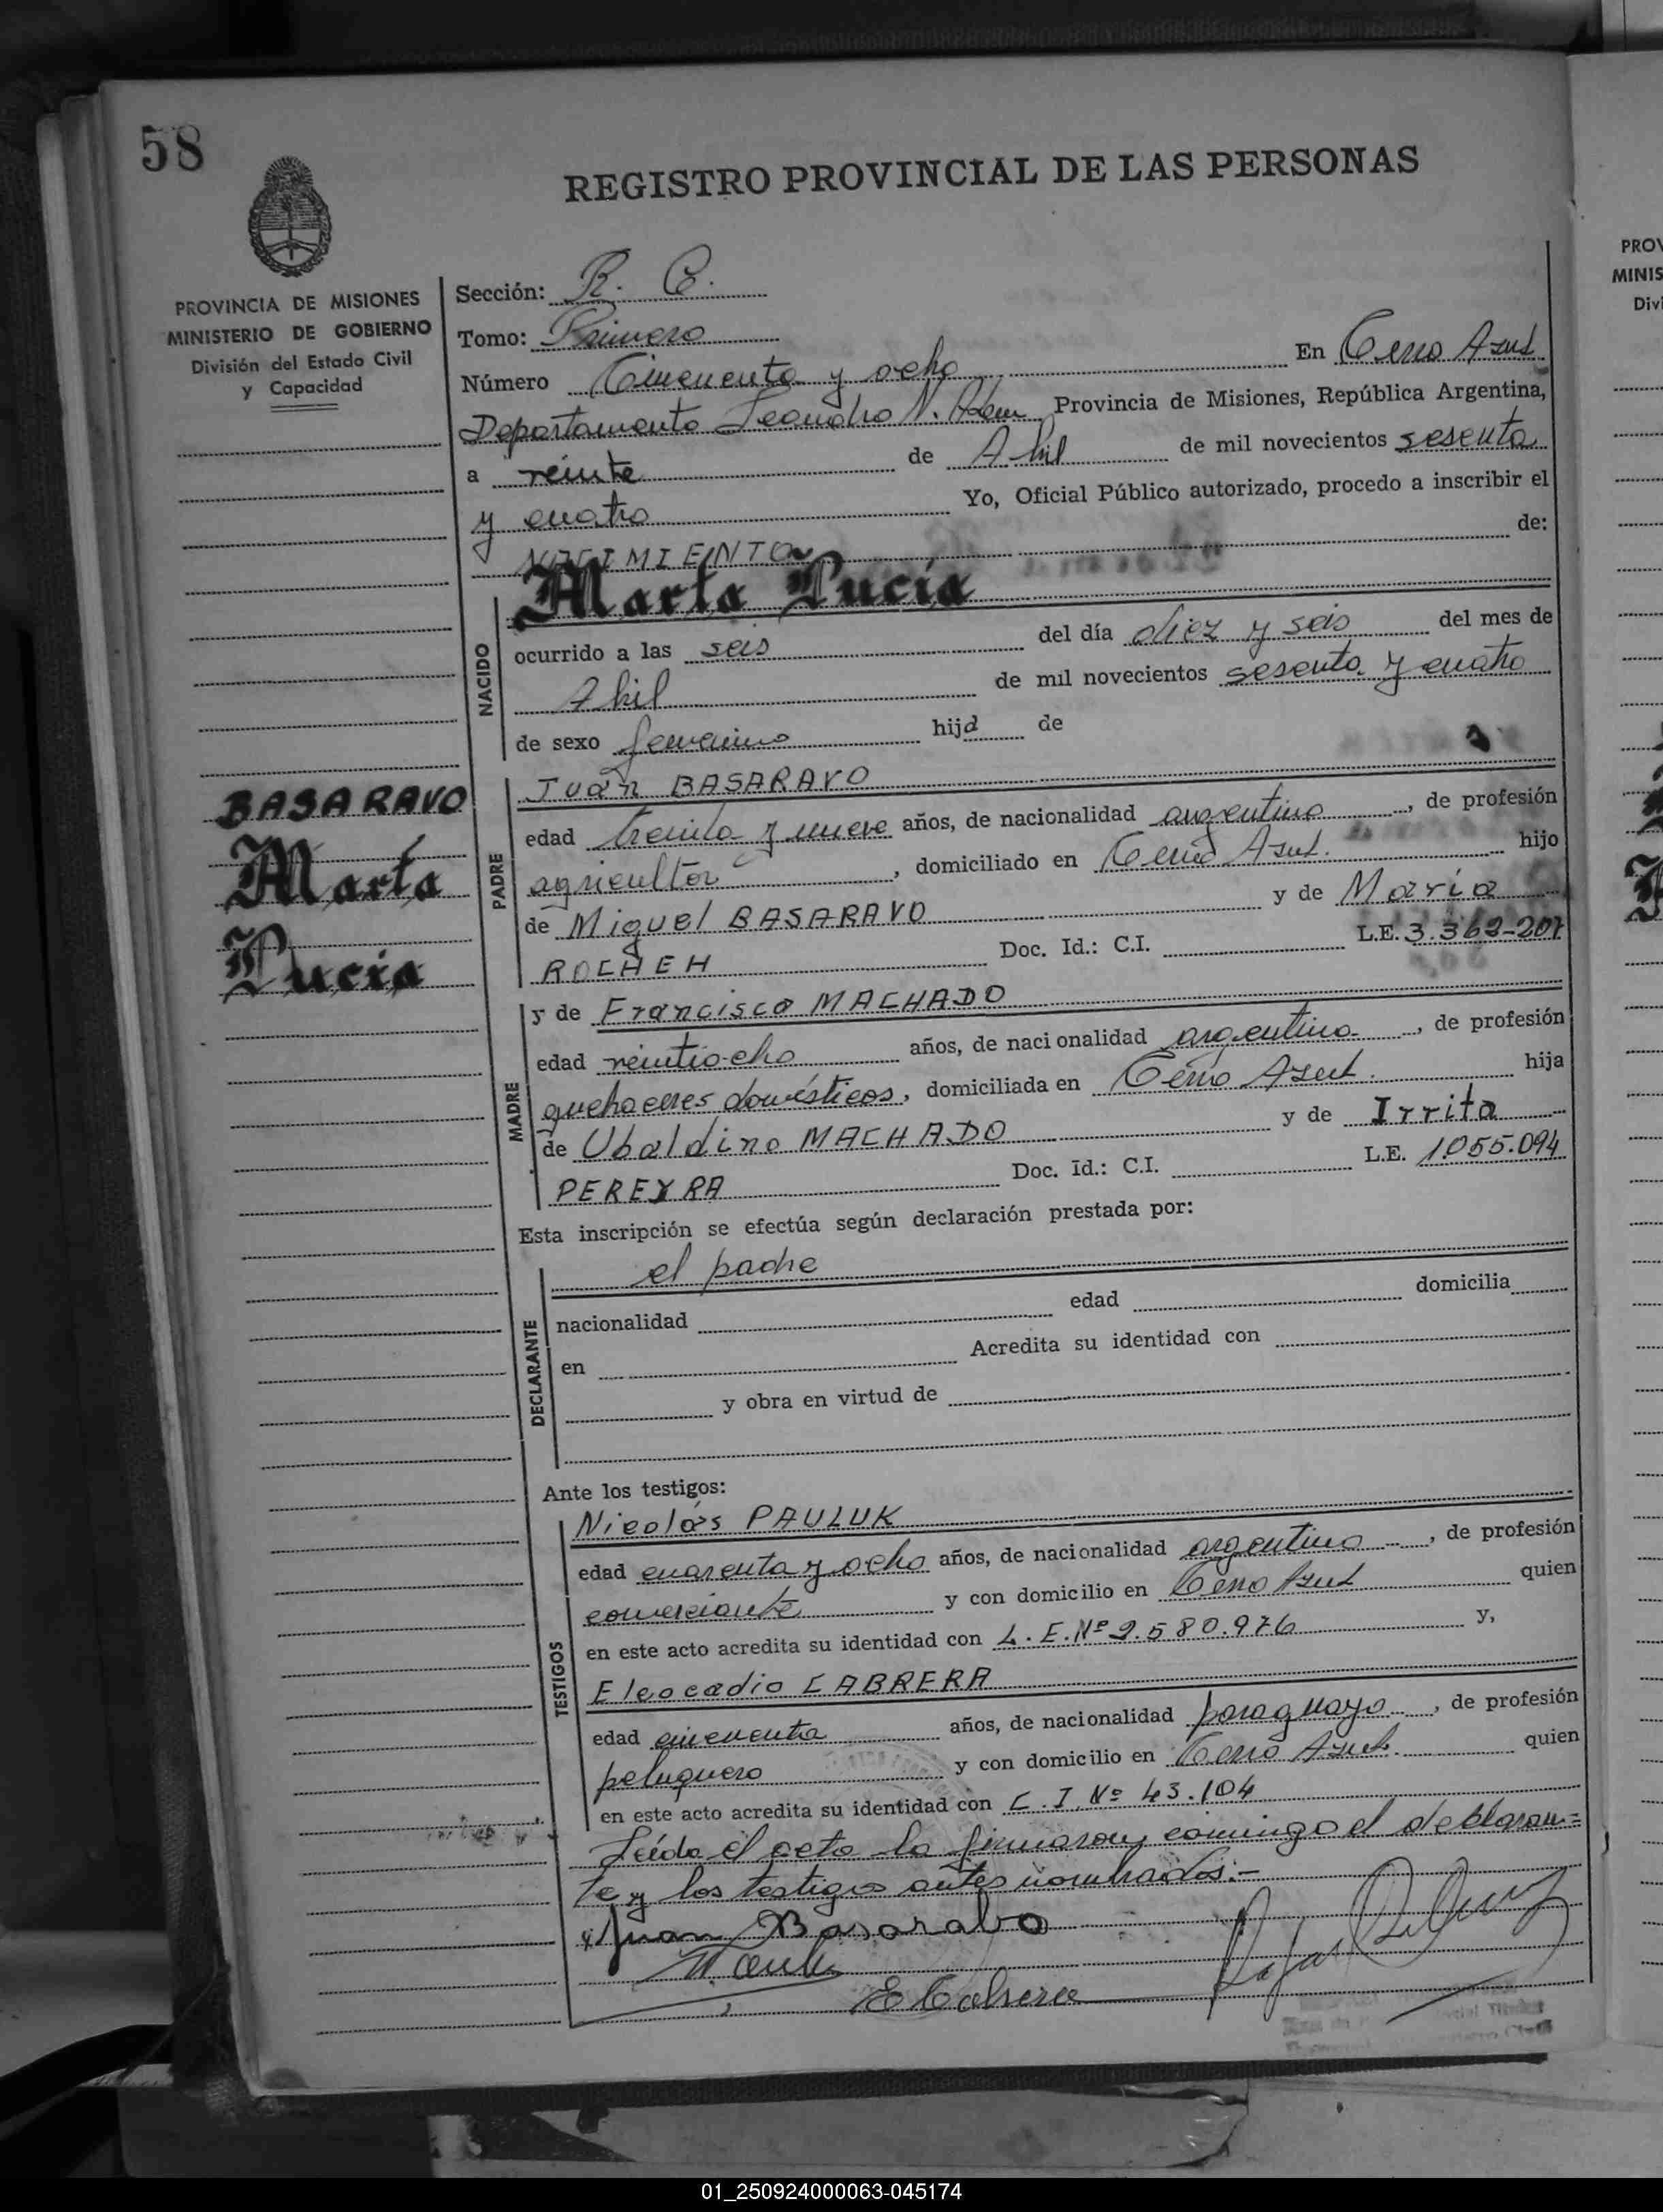 58
REGISTRO PROVINCIAL DE LAS PERSONAS
PROVINCIA DE MISIONES
MINISTERIO DE GOBIERNO
División del Estado Civil
y Capacidad
Sección: R. C.
Tomo: Primero
Número Cincuenta y ocho En Cerro Azul
Departamento Leandro N. Alem Provincia de Misiones, República Argentina,
a veinte de Abril de mil novecientos sesenta
y cuatro Yo, Oficial Público autorizado, procedo a inscribir el
NACIMIENTO de:
Marta Lucía
NACIDO
ocurrido a las seis del día diez y seis del mes de
Abril de mil novecientos sesenta y cuatro
de sexo femenino hija de
BASARAVO
Marta
Lucía
PADRE
Juan BASARAVO
edad treinta y nueve años, de nacionalidad argentino, de profesión
agricultor, domiciliado en Cerro Azul. hijo
de Miguel BASARAVO y de María
ROCHEH Doc. Id.: C.I. L.E. 3.362-207
MADRE
y de Francisca MACHADO
edad veintiocho años, de nacionalidad argentina, de profesión
quehaceres domésticos, domiciliada en Cerro Azul. hija
de Ubaldino MACHADO y de Irrita
PEREYRA Doc. Id.: C.I. L.E. 1.055.094
Esta inscripción se efectúa según declaración prestada por:
DECLARANTE
el padre
nacionalidad edad domicilia
en Acredita su identidad con
y obra en virtud de
Ante los testigos:
TESTIGOS
Nicolás PAULUK
edad cuarenta y ocho años, de nacionalidad argentino, de profesión
comerciante y con domicilio en Cerro Azul quien
en este acto acredita su identidad con L.E.Nº 2.580.976 y,
Eleocadio CABRERA
edad cincuenta años, de nacionalidad paraguayo, de profesión
peluquero y con domicilio en Cerro Azul. quien
en este acto acredita su identidad con C.I. Nº 43.104
Leída el acta la firmaron conmigo el declaran=
te y los testigos antes nombrados.-
Juan Basarabo
E Cabrera
PROV
MINIS
Divi
01_250924000063-045174